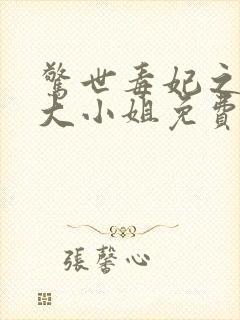 驚世毒妃之
大小姐免費
張馨心